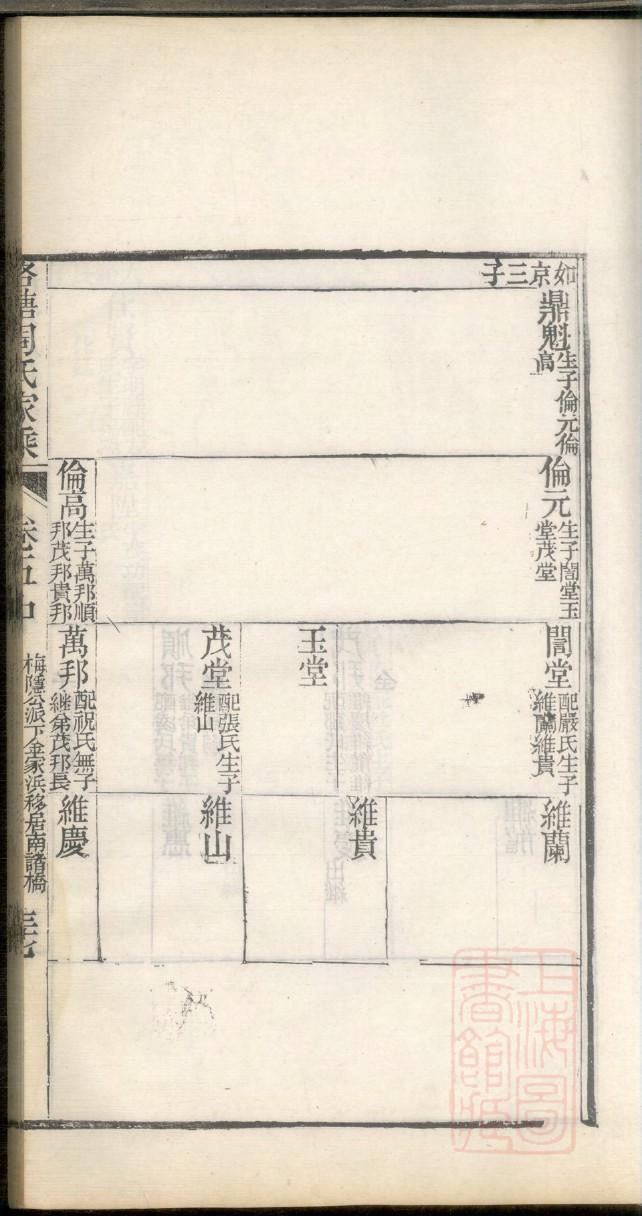 如京三子
鼎魁
生子倫元倫
高
倫元
生子誾堂玉
堂茂堂
誾堂
配嚴氏生子
維蘭維貴
維蘭
維貴
玉堂
茂堂
配張氏生子
維山
維山
倫高
生子萬邦順
邦茂邦貴邦
萬邦
配祝氏無子
繼弟茂邦長
維慶
塘周氏家乘
卷五中
梅隱公派下金家浜移居南諸橋
上海圖書館藏